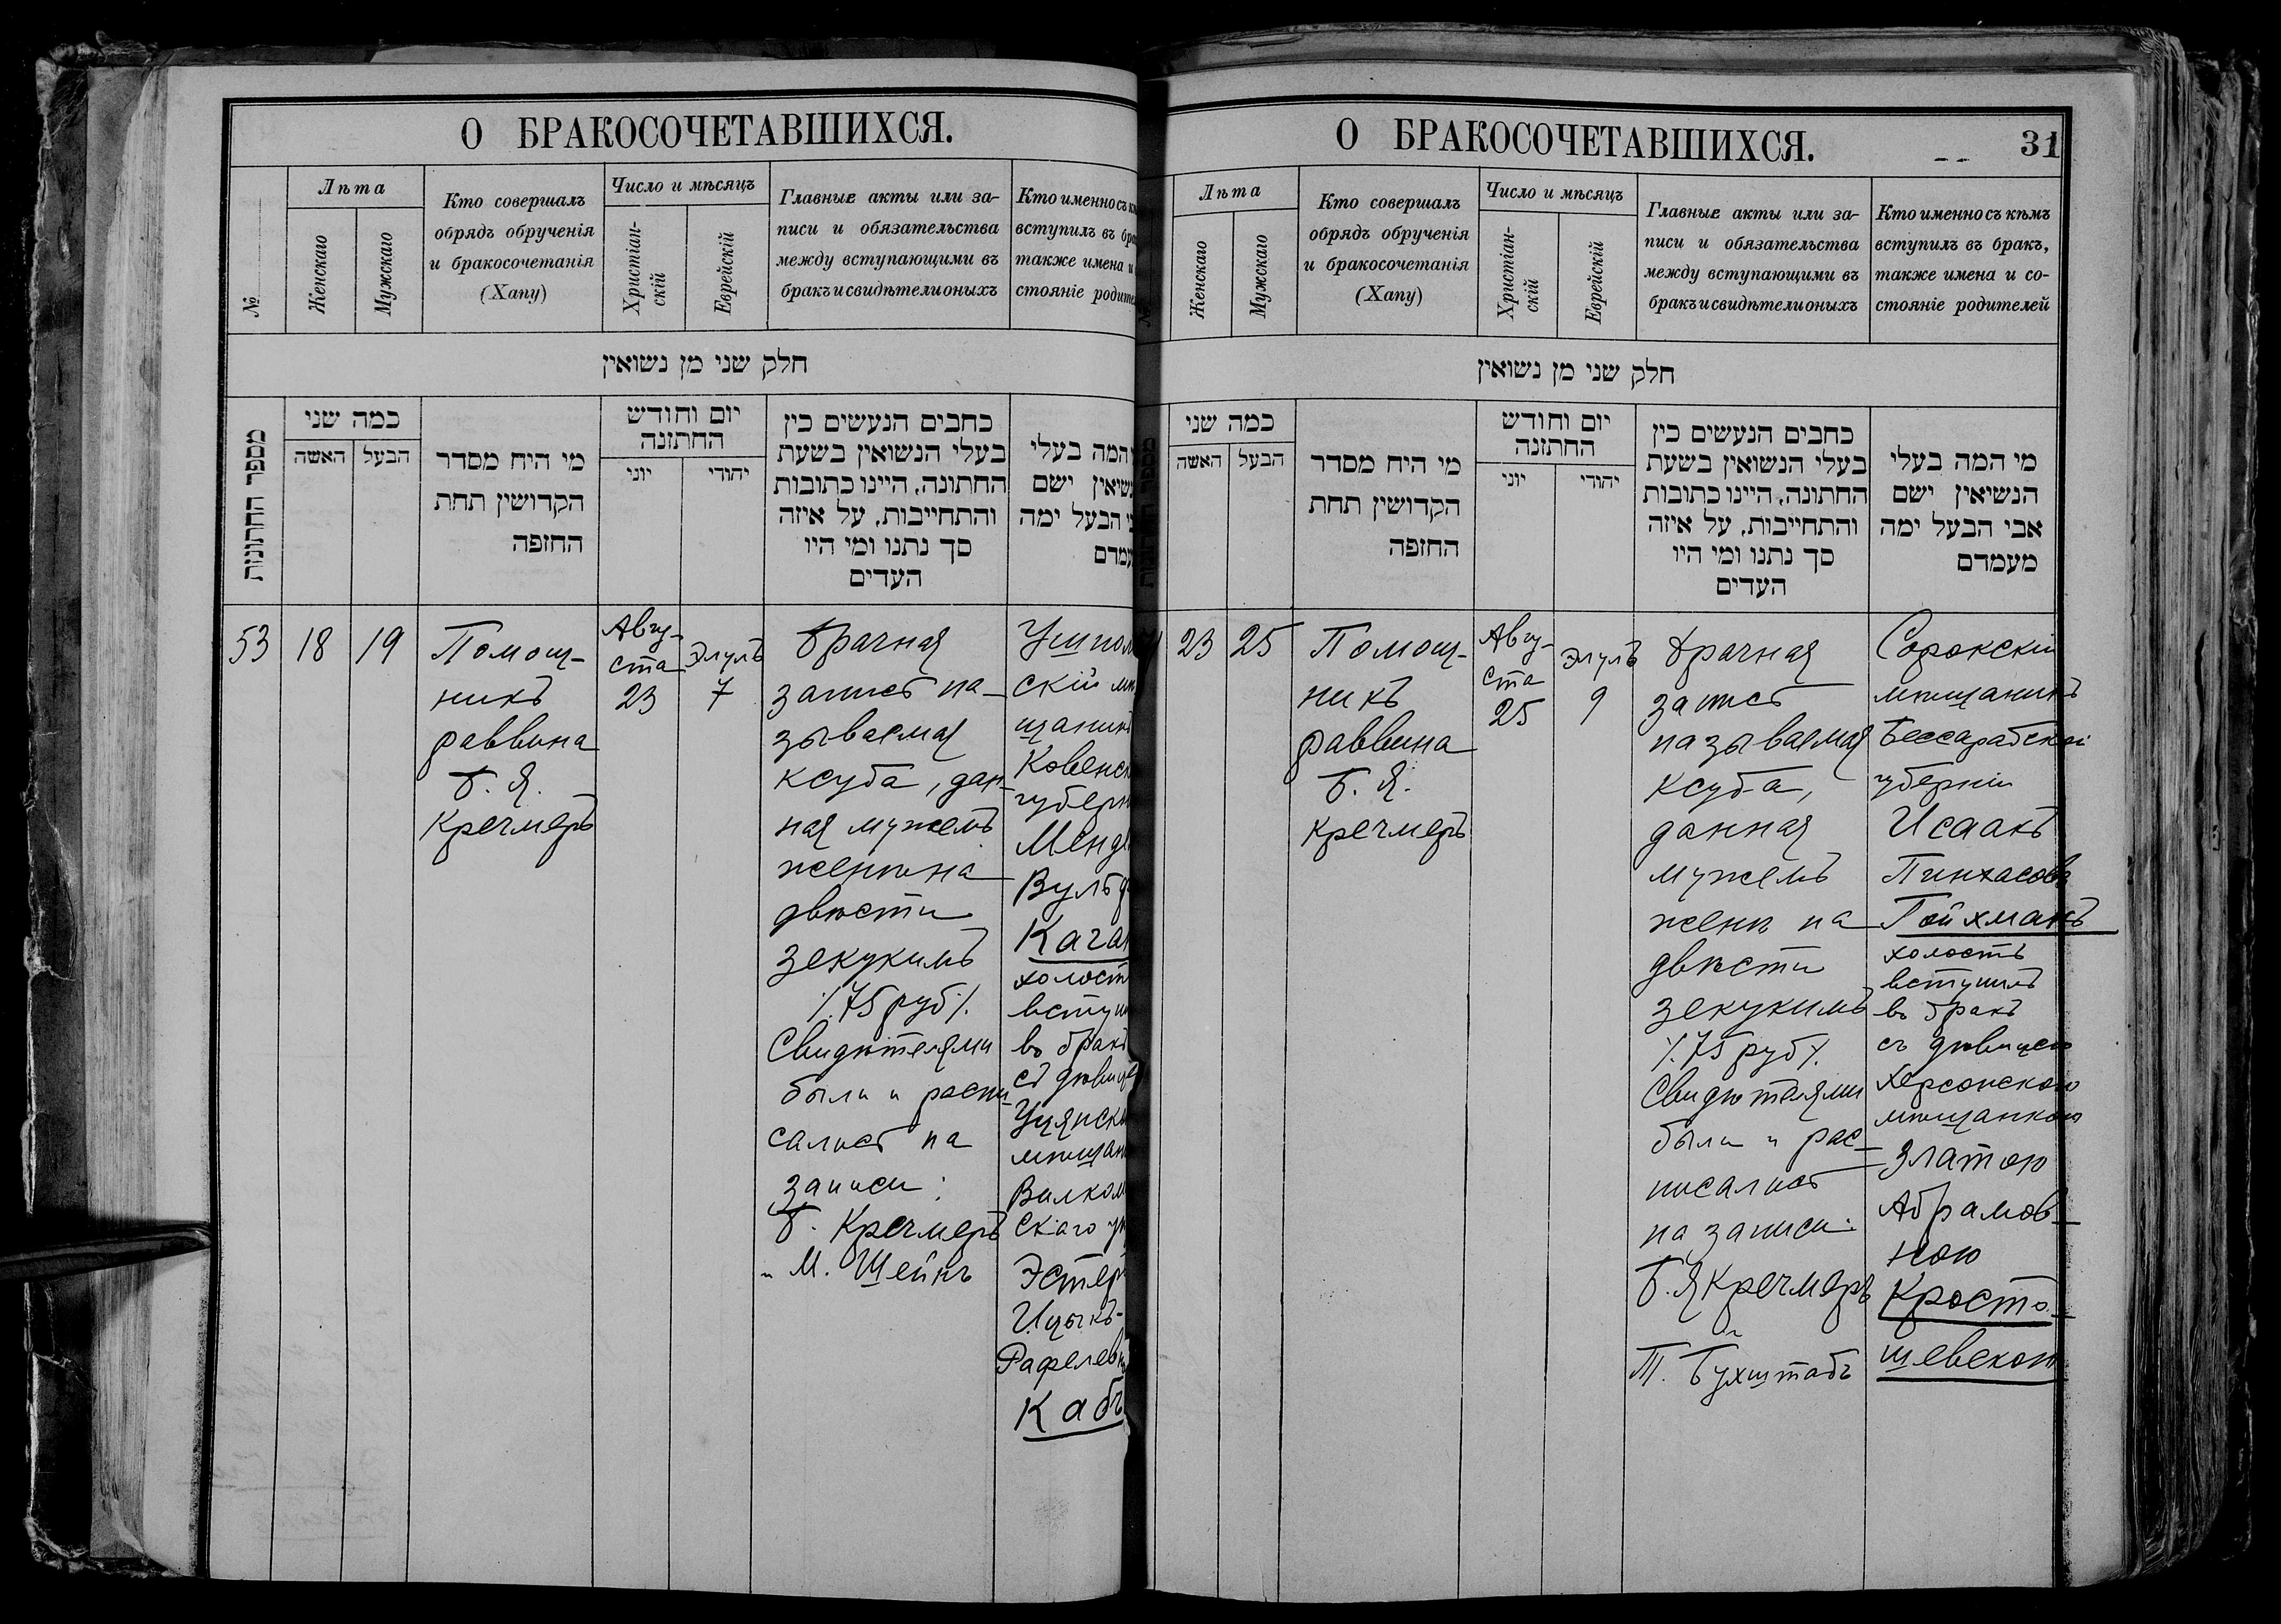 О БРАКОСОЧЕТАВШИХСЯ.
№
Лѣта
Женскаго
Мужскаго
Кто совершалъ
обрядъ обрученія
и бракосочетанія
(Хапу)
Число и мѣсяцъ
Христіан-
скій
Еврейскій
Главные акты или за-
писи и обязательства
между вступающими въ
бракъ и свидѣтели оныхъ
Кто именно съ
вступилъ въ
также имена и
стояніе
חלק שני מן נשואין
מספר החתונות
כמה שני
האשה
הבעל
מי היח מסדר
הקדושין תחת
החזפה
יום וחודש
החתזנה
יוני
יהודי
כחבים הנעשים כין
בעלי הנשואין בשעת
החתונה, היינו כתובות
והתחייבות, על איזה
סך נתנו ומי היו
העדים
המה בעלי
ישם
הבעל ימה
53
18
19
Помощ-
никъ
раввина
Б. Я.
Кречмеръ
Авгу-
ста
23
Элулъ
7
Брачная
запись на-
зываемая
ксуба, дан-
ная мужемъ
женѣ на
двѣсти
зекукимъ
/.75 руб/.
Свидѣтелями
были и распи-
сались на
записи:
Б. Кречмеръ
и М. Шейнъ
скій
холост
въ бракъ
съ
скаго
Ицыкъ-
О БРАКОСОЧЕТАВШИХСЯ.
31
Лѣта
Женскаго
Мужскаго
Кто совершалъ
обрядъ обрученія
и бракосочетанія
(Хапу)
Число и мѣсяцъ
Христіан-
скій
Еврейскій
Главные акты или за-
писи и обязательства
между вступающими въ
бракъ и свидѣтели оныхъ
Кто именно съ кѣмъ
вступилъ въ бракъ,
также имена и со-
стояніе родителей
חלק שני מן נשואין
כמה שני
האשה
הבעל
מי היח מסדר
הקדושין תחת
החזפה
יום וחודש
החתזנה
יוני
יהודי
כחבים הנעשים כין
בעלי הנשואין בשעת
החתונה, היינו כתובות
והתחייבות, על איזה
סך נתנו ומי היו
העדים
מי המה בעלי
הנשיאין ישם
אבי הבעל ימה
מעמדם
23
25
Помощ-
никъ
раввина
Б. Я.
Кречмеръ
Авгу-
ста
25
Элулъ
9
Брачная
запись
называемая
ксуба,
данная
мужемъ
женѣ на
двѣсти
зекукимъ
/.75 руб/.
Свидѣтелями
были и рас-
писались
на записи:
Б. Я Кречмеръ
и
Т. Бухштабъ
Сорокскій
мѣщанинъ
Бессарабской
губерніи
Исаакъ
Пинхасовъ
Гойхманъ
холостъ
вступилъ
въ бракъ
съ дѣвицею
Херсонскою
мѣщанкою
Златою
Абрамов-
ною
Кросто-
шевскою